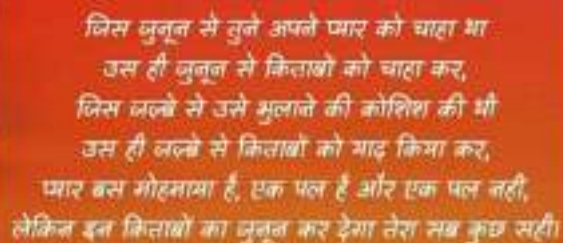 जिस जुनून से तुने अपने प्यार को चाहा था
उस ही जुनून से किताबों को चाहा कर,
जिस जज्बे से उसे भुलाने की कोशिश की थी
उस ही जज्बे से किताबों को याद किया कर,
प्यार बस मोहमाया है, एक पल है और एक पल नही,
लेकिन इन किताबों का जुनून कर देगा तेरा सब कुछ सही।